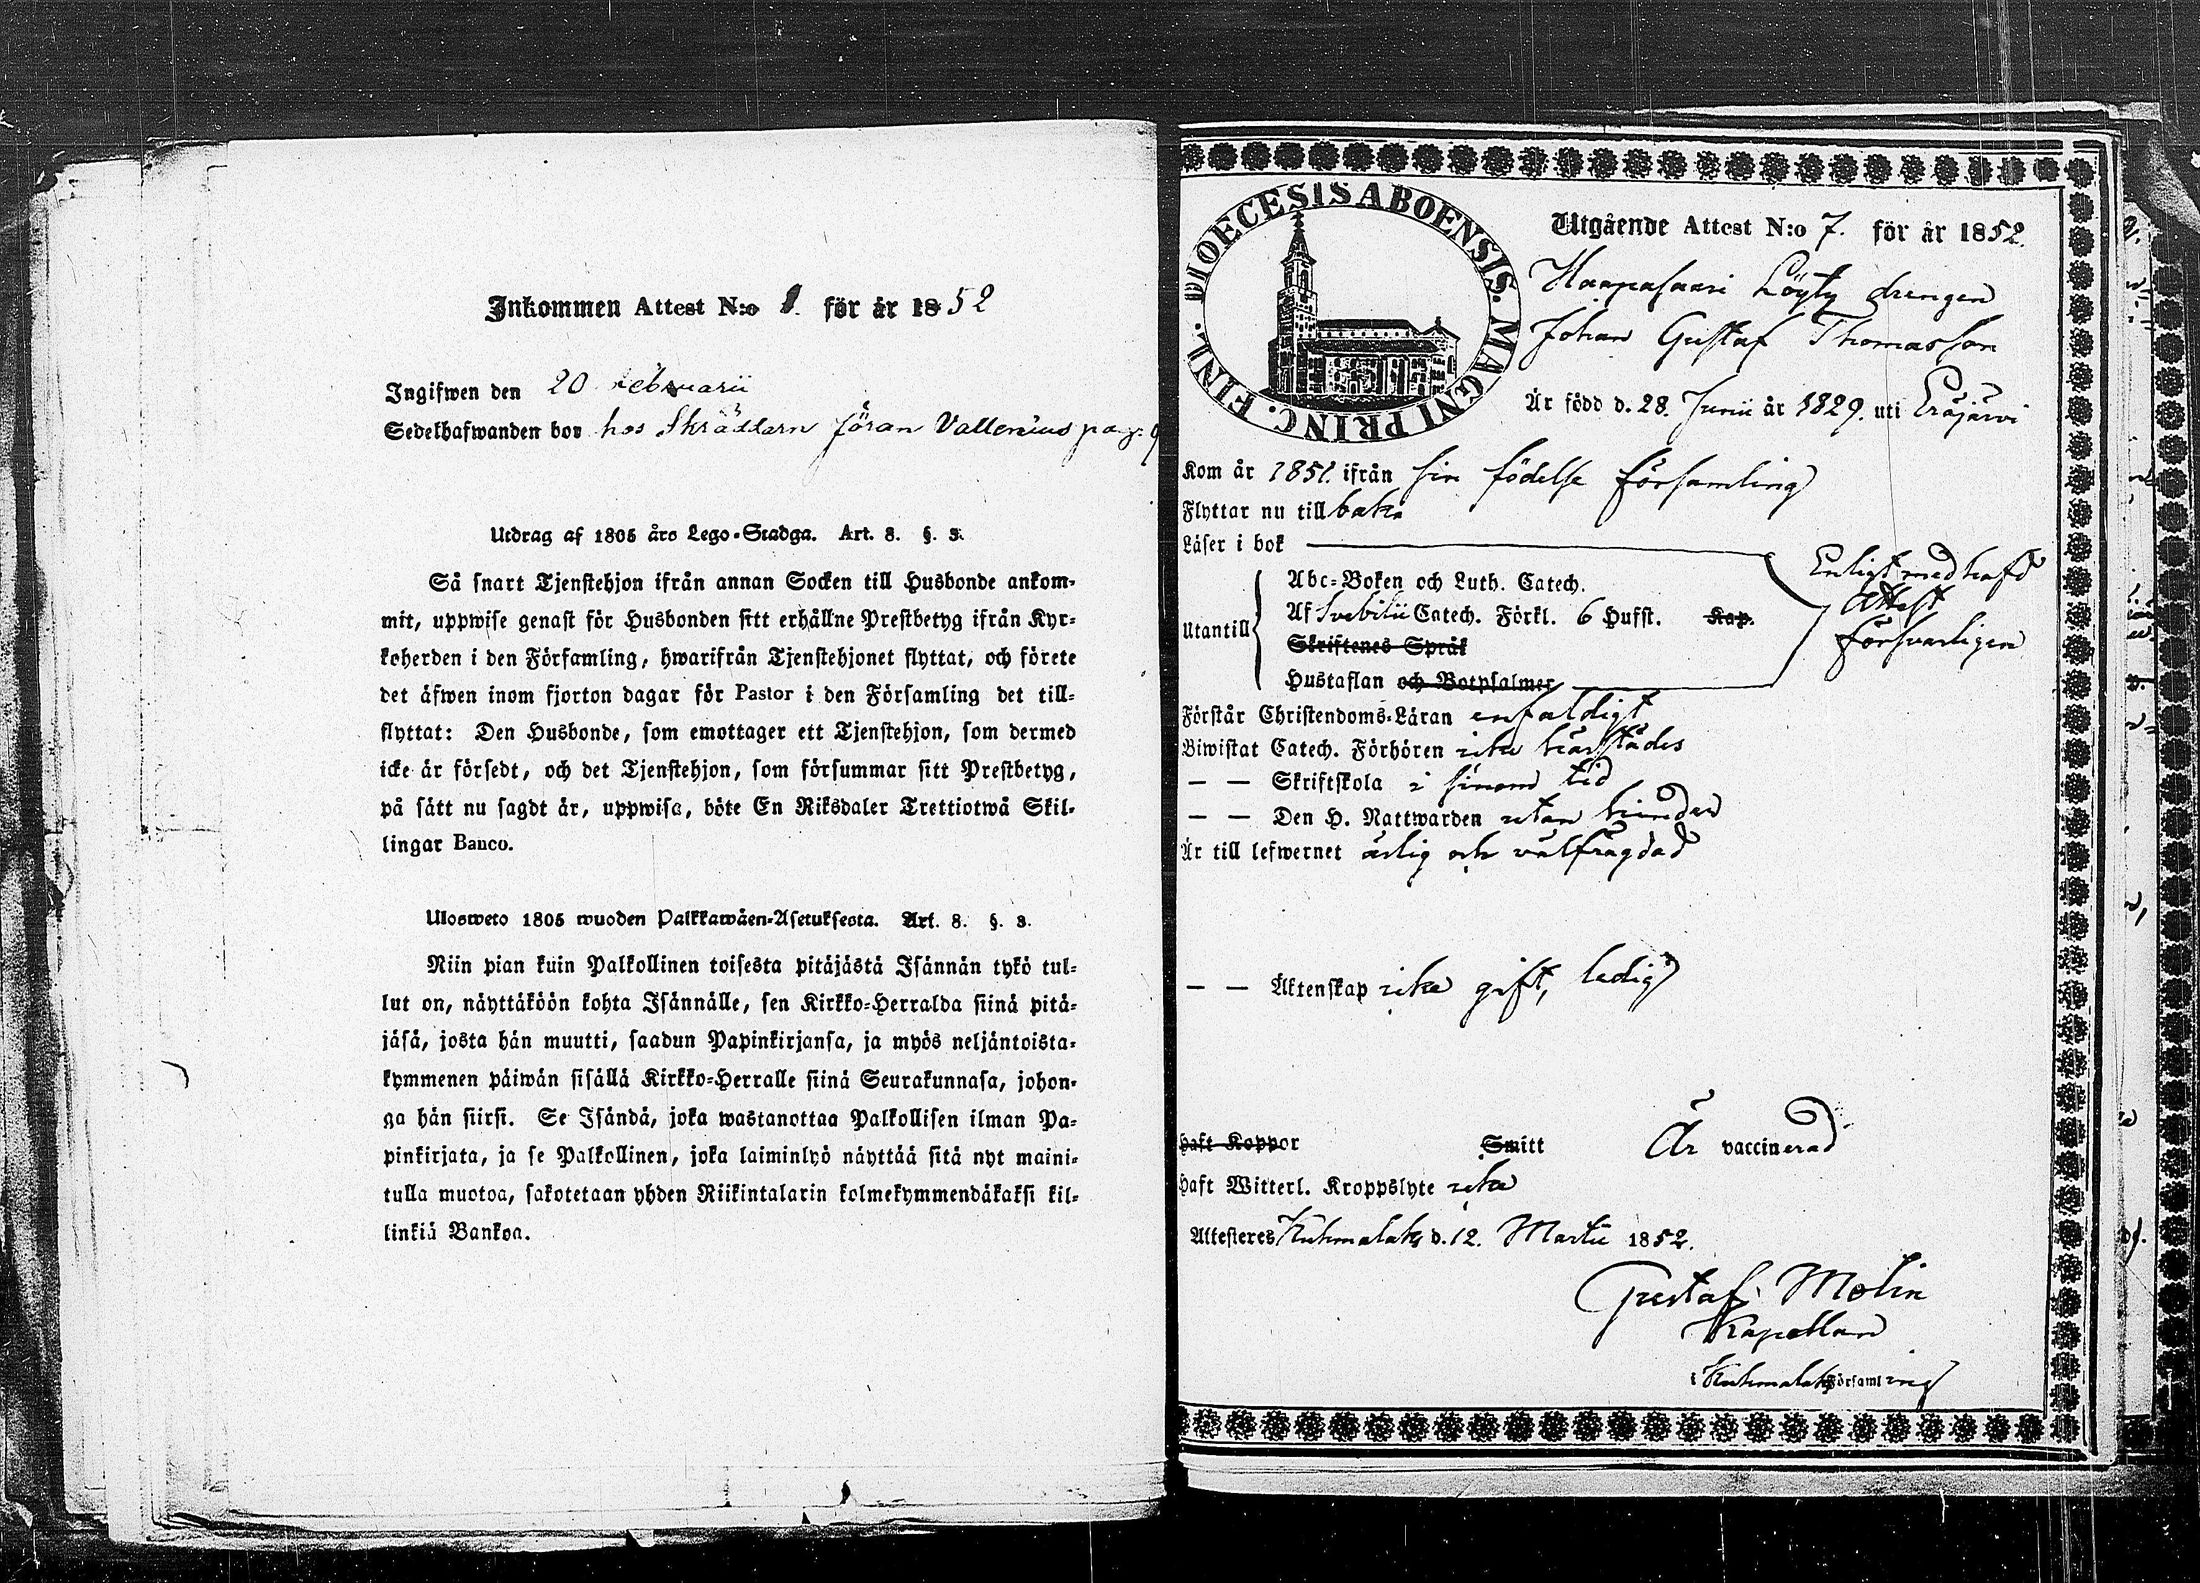 Inkommen Attest N:o 1. för år 1852
Ingifwen den 20 Februarii
Sedelhafwanden bor hos Skräddarn Jöran Vallenius pag. 9
Utdrag af 1805 års Lego-Stadga. Art. 8. §. 3.
Så snart Tjenstehjon ifrån annan Socken till Husbonde ankom-
mit, uppwise genast för Husbonden sitt erhållne Prestbetyg ifrån Kyr-
koherden i den Församling, hwarifrån Tjenstehjonet flyttat, och förete
det äfwen inom fjorton dagar för Pastor i den Församling det till-
flyttat: Den Husbonde, som emottager ett Tjenstehjon, som dermed
icke är försedt, och det Tjenstehjon, som försummar sitt Prestbetyg,
på sätt nu sagdt är, uppwisa, böte En Riksdaler Trettiotwå Skil-
lingar Banco.
Ulosweto 1805 wuoden Palkkawäen-Asetuksesta. Art. 8. §. 3.
Niin pian kuin Palkollinen toisesta pitäjästä Isännän tykö tul-
lut on, näyttäköön kohta Isännälle, sen Kirkko-Herralda siinä pitä-
jäsä, josta hän muutti, saadun Papinkirjansa, ja myös neljäntoista-
kymmenen päiwän sisällä Kirkko-Herralle siinä Seurakunnasa, johon-
ga hän siirsi. Se Isändä, joka wastanottaa Palkollisen ilman Pa-
pinkirjata, ja se Palkollinen, joka laiminlyö näyttää sitä nyt maini-
tulla muotoa, sakotetaan yhden Riikintalarin kolmekymmendäkaksi kil-
linkiä Bankoa.
DIOECESIS ABOENSIS. MAGNI PRINC. FINL.
Utgående Attest N:o 7. för år 1852.
Haapasaari Löyty drengen
Johan Gustaf Thomasson
Är född d. 28. Junii år 1829. uti Eräjärvi
Kom år 1851. ifrån sin födelse församling
Flyttar nu till baka
Läser i bok
Abc-Boken och Luth. Catech.
Utantill Af Svebilii Catech. Förkl. 6 Hufst. Kap.
Skriftenes Språk
Hustaflan och Botpsalmer
Enligt medhafd
Attest
försvarligen
Förstår Christendoms-Läran enfaldigt
Biwistat Catech. Förhören icke härstädes
— — Skriftskola i sinom tid
— — Den H. Nattwarden utan hinder
Är till lefwernet ärlig och välfrägdad
— — Äktenskap icke gift, ledig
Haft Koppor Smitt Är vaccinerad
Haft Witterl. Kroppslyte icke
Attesteres Kuhmalaks d. 12. Martii 1852.
Gustaf Molin
Kapellan
i Kuhmalaks Församling